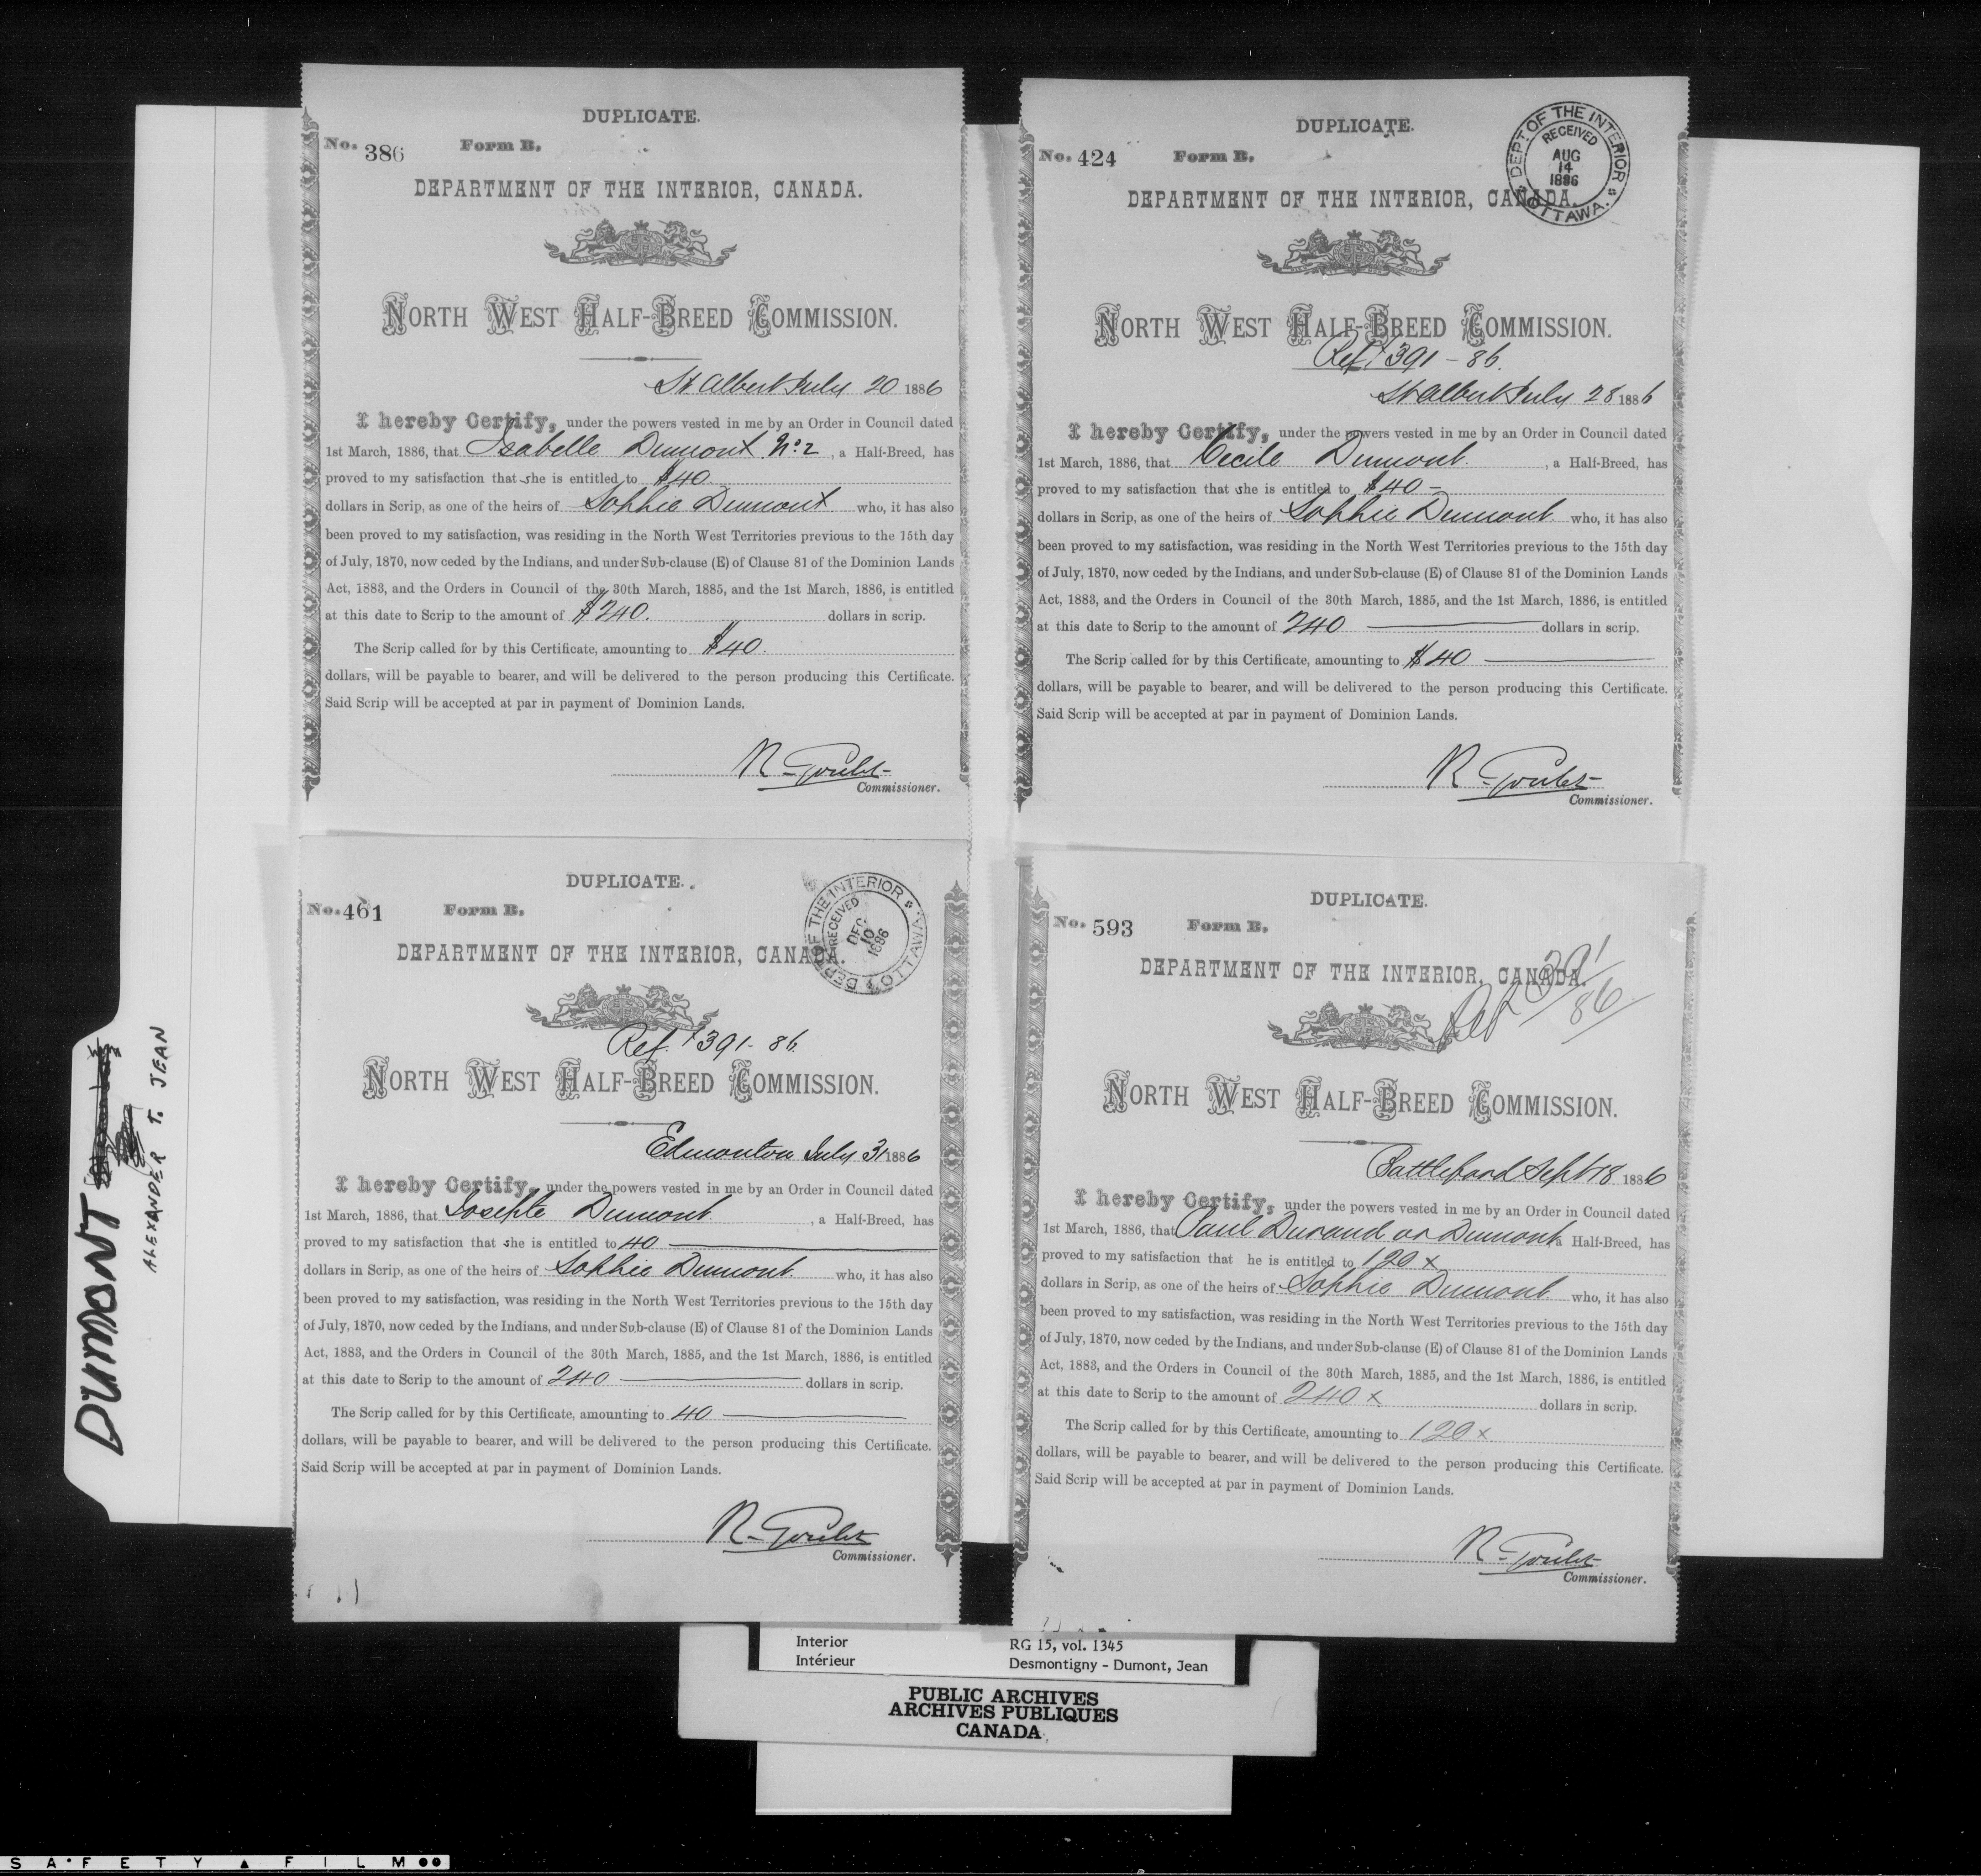 DUPLICATE.
No. 386 Form B.
DEPARTMENT OF THE INTERIOR, CANADA.
NORTH WEST HALF-BREED COMMISSION.
St Albert July 20 1886
I hereby Certify, under the powers vested in me by an Order in Council dated
1st March, 1886, that Isabelle Dumont No: 2, a Half-Breed, has
proved to my satisfaction that she is entitled to $40
dollars in Scrip, as one of the heirs of Sophie Dumont who, it has also
been proved to my satisfaction, was residing in the North West Territories previous to the 15th day
of July, 1870, now ceded by the Indians, and under Sub-clause (E) of Clause 81 of the Dominion Lands
Act, 1883, and the Orders in Council of the 30th March, 1885, and the 1st March, 1886, is entitled
at this date to Scrip to the amount of $240. dollars in scrip.
The Scrip called for by this Certificate, amounting to $40.
dollars, will be payable to bearer, and will be delivered to the person producing this Certificate.
Said Scrip will be accepted at par in payment of Dominion Lands.
R. Goulet
Commissioner.
DUPLICATE.
No. 424 Form B.
DEPT. OF THE INTERIOR OTTAWA.
RECEIVED
AUG
14
1886
DEPARTMENT OF THE INTERIOR, CANADA.
NORTH WEST HALF-BREED COMMISSION.
Ref. 391-86.
St Albert July 28 1886
I hereby Certify, under the powers vested in me by an Order in Council dated
1st March, 1886, that Cecile Dumont, a Half-Breed, has
proved to my satisfaction that she is entitled to $40-
dollars in Scrip, as one of the heirs of Sophie Dumont who, it has also
been proved to my satisfaction, was residing in the North West Territories previous to the 15th day
of July, 1870, now ceded by the Indians, and under Sub-clause (E) of Clause 81 of the Dominion Lands
Act, 1883, and the Orders in Council of the 30th March, 1885, and the 1st March, 1886, is entitled
at this date to Scrip to the amount of 240 dollars in scrip.
The Scrip called for by this Certificate, amounting to $40
dollars, will be payable to bearer, and will be delivered to the person producing this Certificate.
Said Scrip will be accepted at par in payment of Dominion Lands.
R. Goulet
Commissioner.
DUPLICATE.
No. 461 Form B.
DEPT. OF THE INTERIOR OTTAWA.
RECEIVED
DEC
10
1886
DEPARTMENT OF THE INTERIOR, CANADA.
Ref. 391-86.
NORTH WEST HALF-BREED COMMISSION.
Edmonton July 31 1886
I hereby Certify, under the powers vested in me by an Order in Council dated
1st March, 1886, that Josephte Dumont, a Half-Breed, has
proved to my satisfaction that she is entitled to 40
dollars in Scrip, as one of the heirs of Sophie Dumont who, it has also
been proved to my satisfaction, was residing in the North West Territories previous to the 15th day
of July, 1870, now ceded by the Indians, and under Sub-clause (E) of Clause 81 of the Dominion Lands
Act, 1883, and the Orders in Council of the 30th March, 1885, and the 1st March, 1886, is entitled
at this date to Scrip to the amount of 240 dollars in scrip.
The Scrip called for by this Certificate, amounting to 40
dollars, will be payable to bearer, and will be delivered to the person producing this Certificate.
Said Scrip will be accepted at par in payment of Dominion Lands.
R. Goulet
Commissioner.
DUPLICATE.
No. 593 Form B.
DEPARTMENT OF THE INTERIOR, CANADA.
Ref 391/86
NORTH WEST HALF-BREED COMMISSION.
Battleford Sept 18 1886
I hereby Certify, under the powers vested in me by an Order in Council dated
1st March, 1886, that Paul Durand or Dumont a Half-Breed, has
proved to my satisfaction that he is entitled to 120 x
dollars in Scrip, as one of the heirs of Sophie Dumont who, it has also
been proved to my satisfaction, was residing in the North West Territories previous to the 15th day
of July, 1870, now ceded by the Indians, and under Sub-clause (E) of Clause 81 of the Dominion Lands
Act, 1883, and the Orders in Council of the 30th March, 1885, and the 1st March, 1886, is entitled
at this date to Scrip to the amount of 240 x dollars in scrip.
The Scrip called for by this Certificate, amounting to 120 x
dollars, will be payable to bearer, and will be delivered to the person producing this Certificate.
Said Scrip will be accepted at par in payment of Dominion Lands.
R. Goulet
Commissioner.
DUMONT
ALEXANDER T. JEAN
Interior RG 15, vol. 1345
Intérieur Desmontigny - Dumont, Jean
PUBLIC ARCHIVES
ARCHIVES PUBLIQUES
CANADA
SAFETY FILM